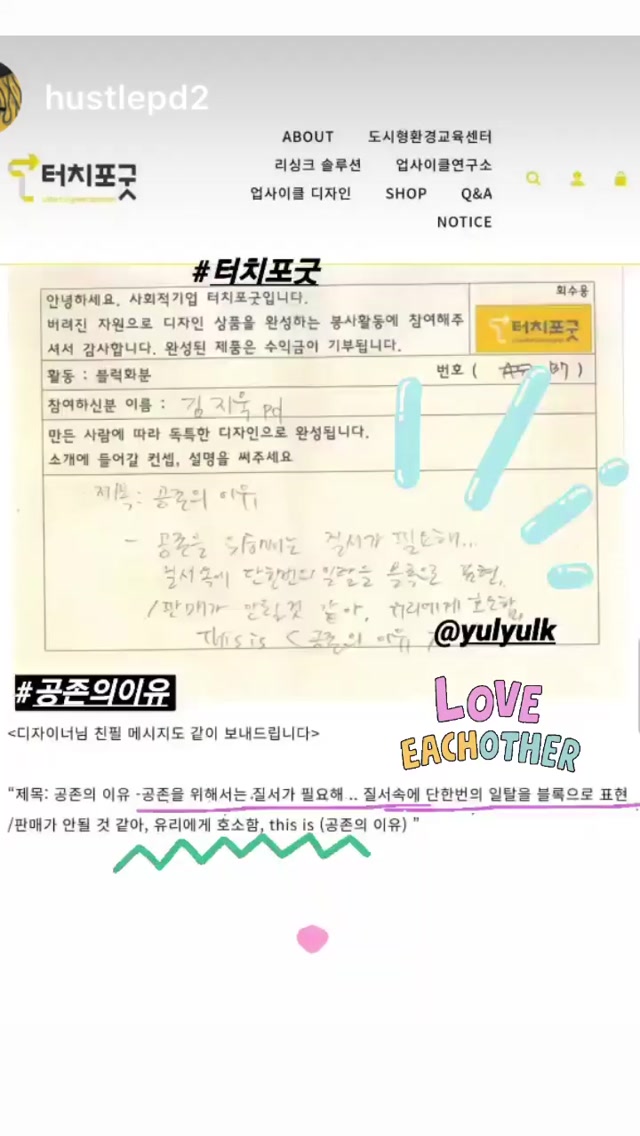 hustlepd2
ABOUT 도시형환경교육센터
터치포굿
리싱크 솔루션 업사이클연구소
업사이클 디자인 SHOP Q&A
NOTICE
#터치포굿
안녕하세요, 사회적기업 터치포굿입니다.
회수용
버려진 자원으로 디자인 상품을 완성하는 봉사활동에 참여해주
터치포굿
셔서 감사합니다. 완성된 제품은 수익금이 기부됩니다.
활동 : 블럭화분 번호 ( B7 )
참여하신분 이름 : 김지욱 pd
만든 사람에 따라 독특한 디자인으로 완성됩니다.
소개에 들어갈 컨셉, 설명을 써주세요
제목: 공존의 이유
- 공존을 위해서는 질서가 필요해...
질서속에 단한번의 일탈을 블록으로 표현,
/판매가 안될것 같아, 유리에게 호소함,
This is < 공존의 이유 >
@yulyulk
#공존의이유
LOVE
EACHOTHER
<디자이너님 친필 메시지도 같이 보내드립니다>
"제목: 공존의 이유 -공존을 위해서는 질서가 필요해 .. 질서속에 단한번의 일탈을 블록으로 표현
/판매가 안될 것 같아, 유리에게 호소함, this is (공존의 이유) "